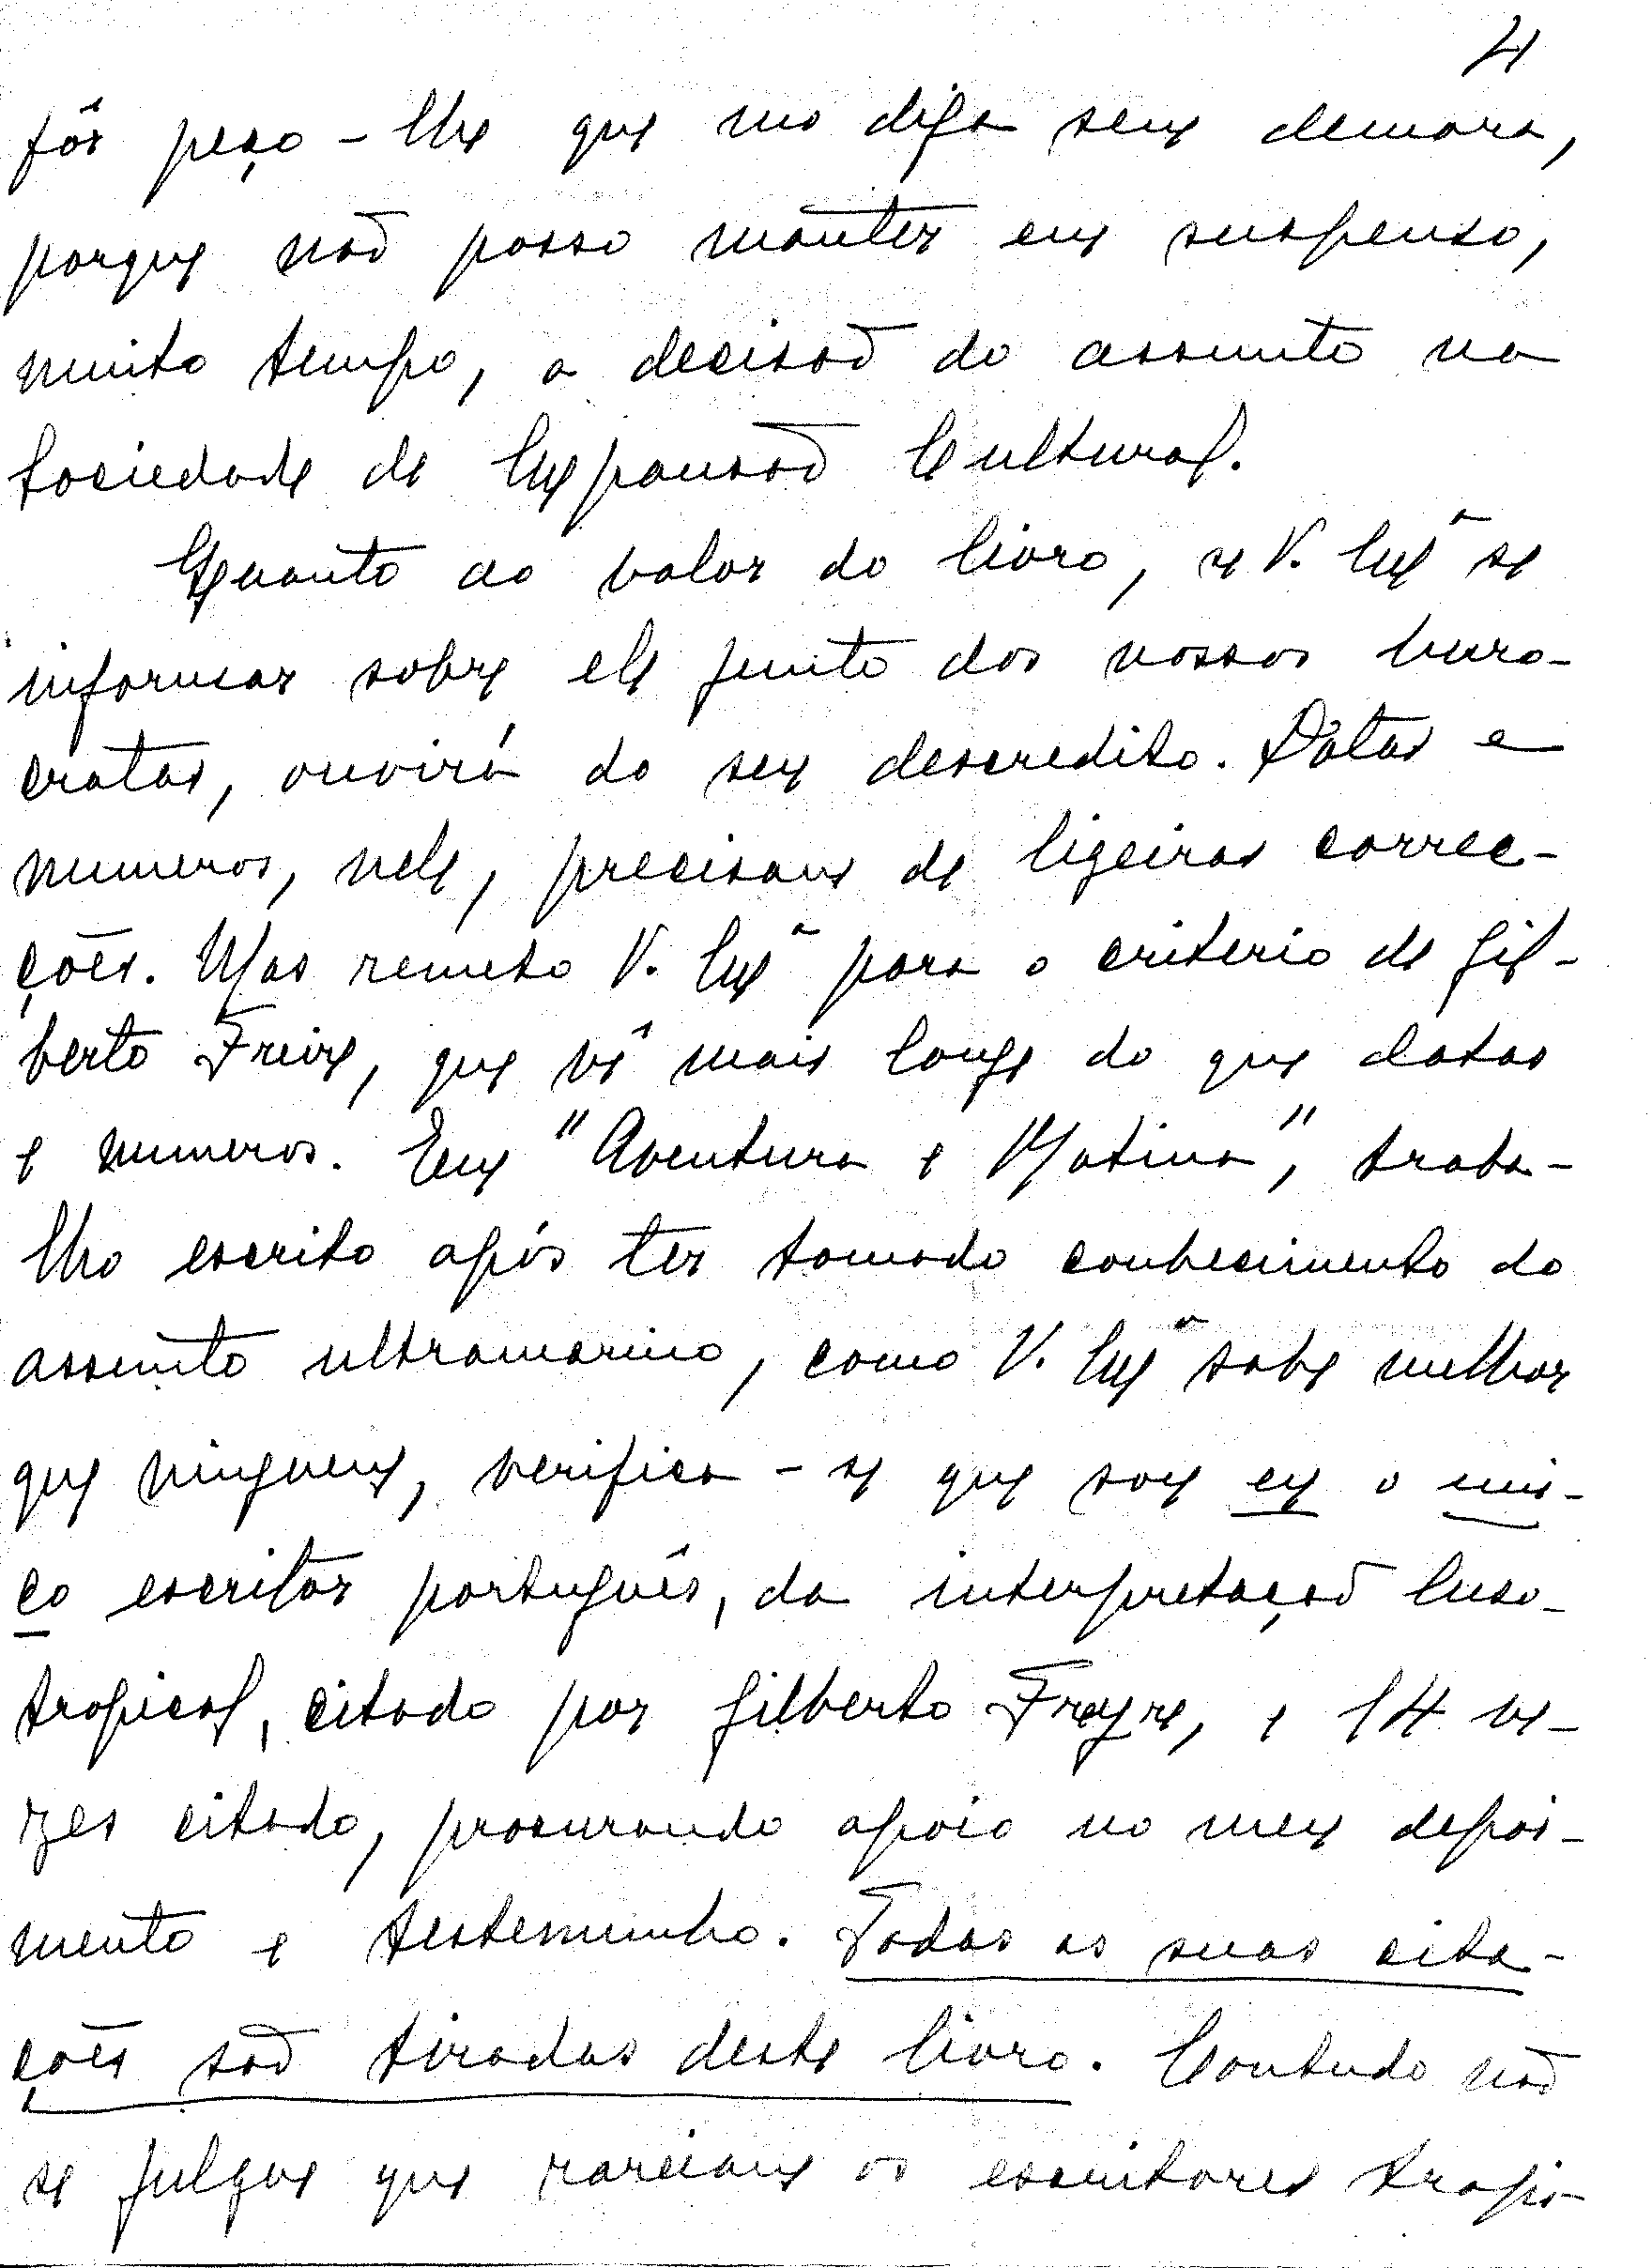 4
fôr peço-lhe que mo diga sem demora,
porque não posso manter em suspenso,
muito tempo, a decisão do assunto na
Sociedade de Expansão Cultural.
Quanto ao valor do livro, se V. Exª se
informar sobre ele junto dos nossos buro-
cratas, ouvirá do seu descredito. Datas e
numeros, nele, precisam de ligeiras correc-
ções. Mas remeto V. Exª para o criterio de Gil-
berto Freire, que vê mais longe do que datas
e numeros. Em "Aventura e Rotina", traba-
lho escrito após ter tomado conhecimento do
assunto ultramarino, como V. Exª sabe melhor
que ninguem, verifica-se que sou eu o uni-
co escritor português, da interpretação luso-
tropical, citado por Gilberto Freyre, e 14 ve-
zes citado, procurando apoio no meu depoi-
mento e testemunho. Todas as suas cita-
ções são tiradas deste livro. Contudo não
se julgue que rareiam os escritores tropi-